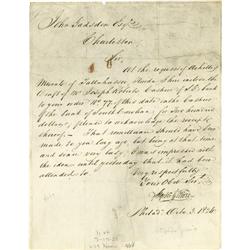 John Gadsden Esqr.
Charleston
Sir,
At the request of Achille
Murat of Tallahassee Florida I here enclose the
Draft of Mr. Joseph Roberts Cashier of
to your order No. 77 of this date on the Cashier
of the bank of South Carolina for one hundred
dollars, please to acknowledge the receipt
thereof. That remittance should have been
made to you long ago, but being at that time
and since very busy I was impressed with
the idea until yesterday that it had been
attended to.
Very respectfully
Your Obt. Sert.
Philad. 3. 1826.